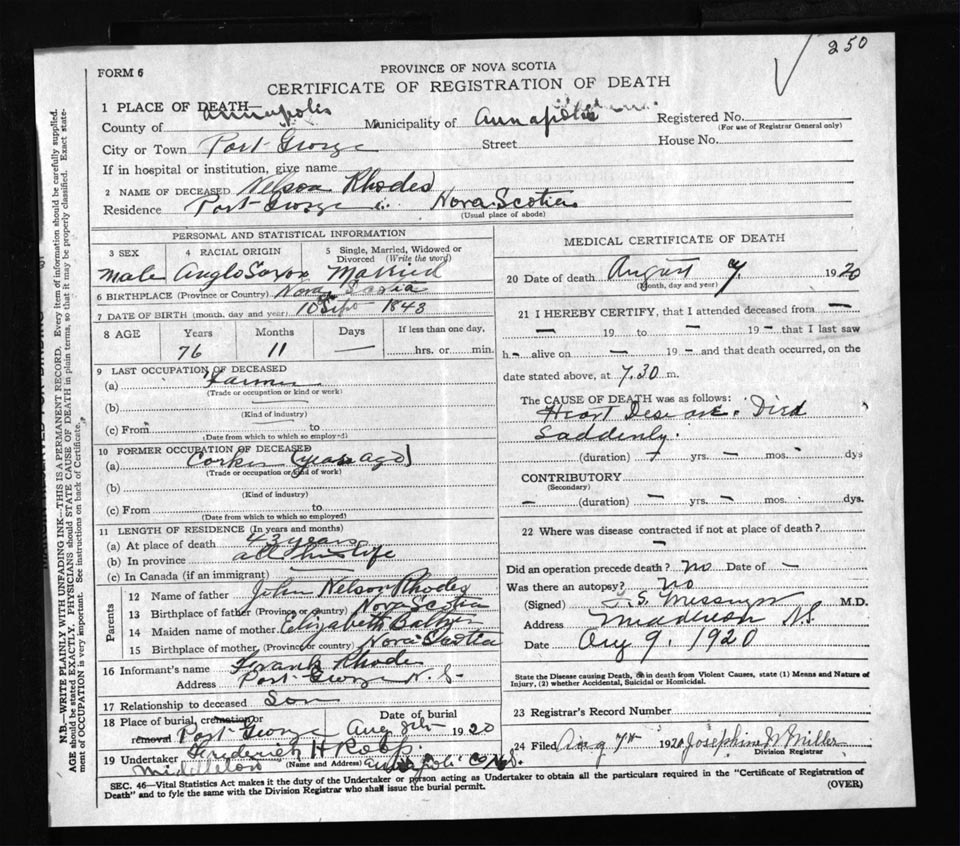 250
FORM 6
PROVINCE OF NOVA SCOTIA
CERTIFICATE OF REGISTRATION OF DEATH
1 PLACE OF DEATH—
County of Annapolis Municipality of Annapolis Registered No.
(For use of Registrar General only)
City or Town Port George Street House No.
If in hospital or institution, give name
2 NAME OF DECEASED Nelson Rhodes
Residence Port George Nova Scotia
(Usual place of abode)
PERSONAL AND STATISTICAL INFORMATION
3 SEX 4 RACIAL ORIGIN 5 Single, Married, Widowed or Divorced (Write the word)
Male Anglo Saxon Married
6 BIRTHPLACE (Province or Country) Nova Scotia
7 DATE OF BIRTH (month, day and year) 10 Sept 1843
8 AGE Years Months Days If less than one day,
76 11 — hrs. or min.
9 LAST OCCUPATION OF DECEASED
(a) Farmer
(Trade or occupation or kind or work)
(b)
(Kind of industry)
(c) From to
(Date from which to which so employed)
10 FORMER OCCUPATION OF DECEASED
(a) (years ago)
(Trade or occupation or kind of work)
(b)
(Kind of industry)
(c) From to
(Date from which to which so employed)
11 LENGTH OF RESIDENCE (In years and months)
(a) At place of death 43 years
(b) In province all his life
(c) In Canada (if an immigrant)
Parents
12 Name of father John Nelson Rhodes
13 Birthplace of father (Province or country) Nova Scotia
14 Maiden name of mother Elizabeth
15 Birthplace of mother (Province or country) Nova Scotia
16 Informant's name Frank Rhodes
Address Port George N. S
17 Relationship to deceased Son
18 Place of burial, cremation or removal Port George Date of burial Aug 8th 1920
19 Undertaker Frederick H
(Name and Address)
Middleton Annapolis Co N.S.
MEDICAL CERTIFICATE OF DEATH
20 Date of death August 7 1920
(Month, day and year)
21 I HEREBY CERTIFY, that I attended deceased from —
— 19 to — 19 — that I last saw
h— alive on — 19 — and that death occurred, on the
date stated above, at 7.30 m.
The CAUSE OF DEATH was as follows:
Heart Disease. Died
Saddenly.
(duration) yrs. — mos. dys
CONTRIBUTORY —
(Secondary)
— (duration) — yrs. — mos. — dys.
22 Where was disease contracted if not at place of death?
—
Did an operation precede death? No Date of —
Was there an autopsy? No
(Signed) S. Messinger M.D.
Address N.S.
Date Aug 9, 1920
State the Disease causing Death, or in death from Violent Causes, state (1) Means and Nature of
Injury, (2) whether Accidental, Suicidal or Homicidal.
23 Registrar's Record Number
24 Filed Aug 7th 1920 Josephine W Miller
Division Registrar
SEC. 46—Vital Statistics Act makes it the duty of the Undertaker or person acting as Undertaker to obtain all the particulars required in the "Certificate of Registration of
Death" and to fyle the same with the Division Registrar who shall issue the burial permit. (OVER)
N.B.—WRITE PLAINLY WITH UNFADING INK—THIS IS A PERMANENT RECORD. Every item of information should be carefully supplied.
AGE should be stated EXACTLY. PHYSICIANS should STATE CAUSE OF DEATH in plain terms, so that it may be properly classified. Exact statement
of OCCUPATION is very important. See instructions on back of Certificate.